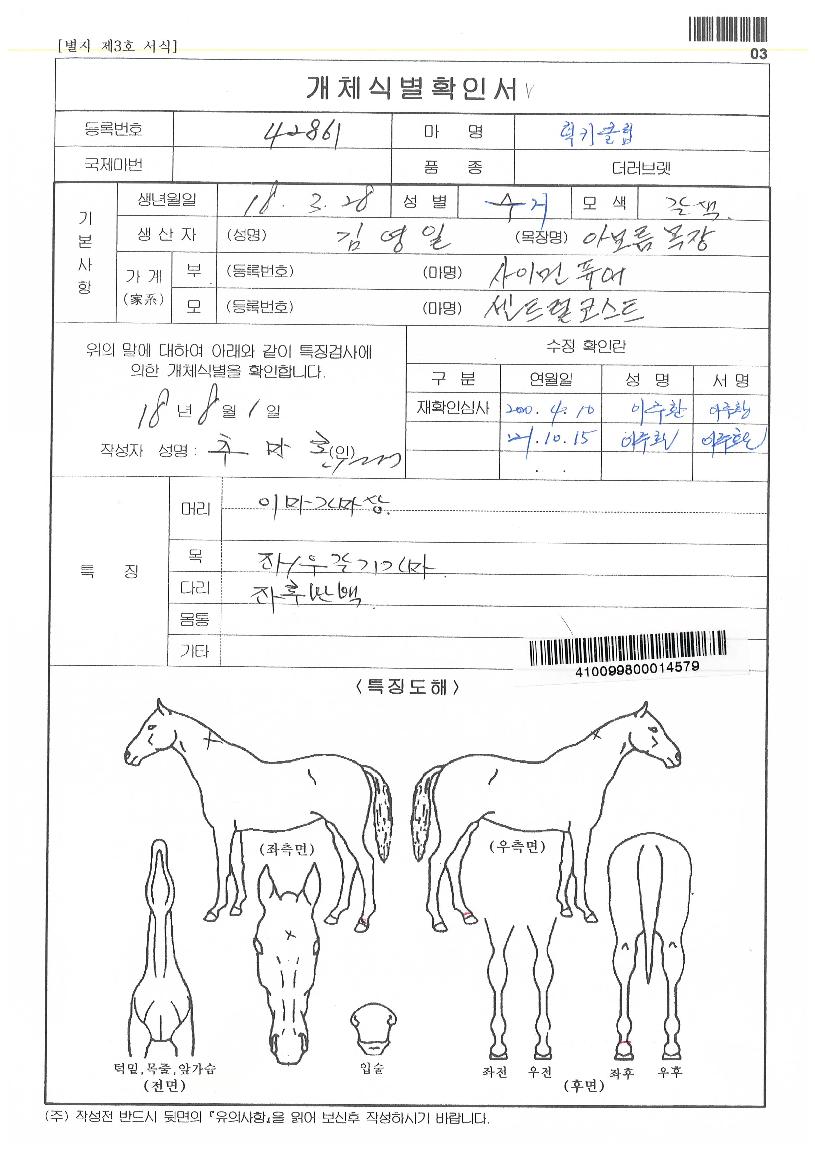 [별지 제3호 서식]
03
개체식별확인서 V
등록번호 42861 마 명 럭키클럽
국제마번 품 종 더러브렛
기본사항
생년월일 18. 3. 28 성 별 수 모 색 갈색.
생 산 자 (성명) 김영일 (목장명) 아보름목장
가 계 (家系) 부 (등록번호) (마명) 사이먼퓨어
모 (등록번호) (마명) 센트럴코스트
위의 말에 대하여 아래와 같이 특징검사에
의한 개체식별을 확인합니다.
18 년 8 월 1 일
작성자 성명 : (인)
수징 확인란
구 분 연월일 성 명 서 명
재확인심사 200. 4. 10 이주환 이주환
21. 10. 15 이주환 이주환
. .
특 징
머리 이마가마상.
목 좌/우갈기가마
다리 좌후반백
몸통
기타
410099800014579
<특징도해>
(좌측면)
(우측면)
턱밑,목줄,앞가슴
(전면)
입술
좌전 우전
좌후 우후
(후면)
(주) 작성전 반드시 뒷면의 『유의사항』을 읽어 보신후 작성하시기 바랍니다.